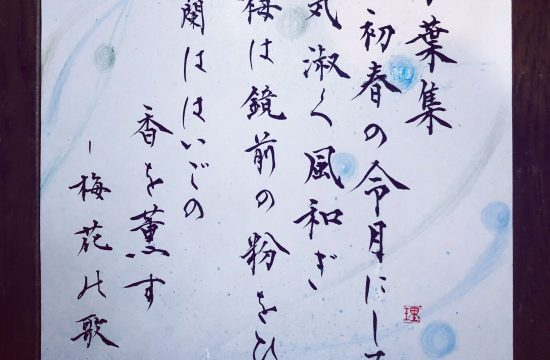 葉集
初春の令月にし
気淑く風和ぎ
梅は鏡前の粉をひ
蘭ははいごの
香を薫す
-梅花の歌
理